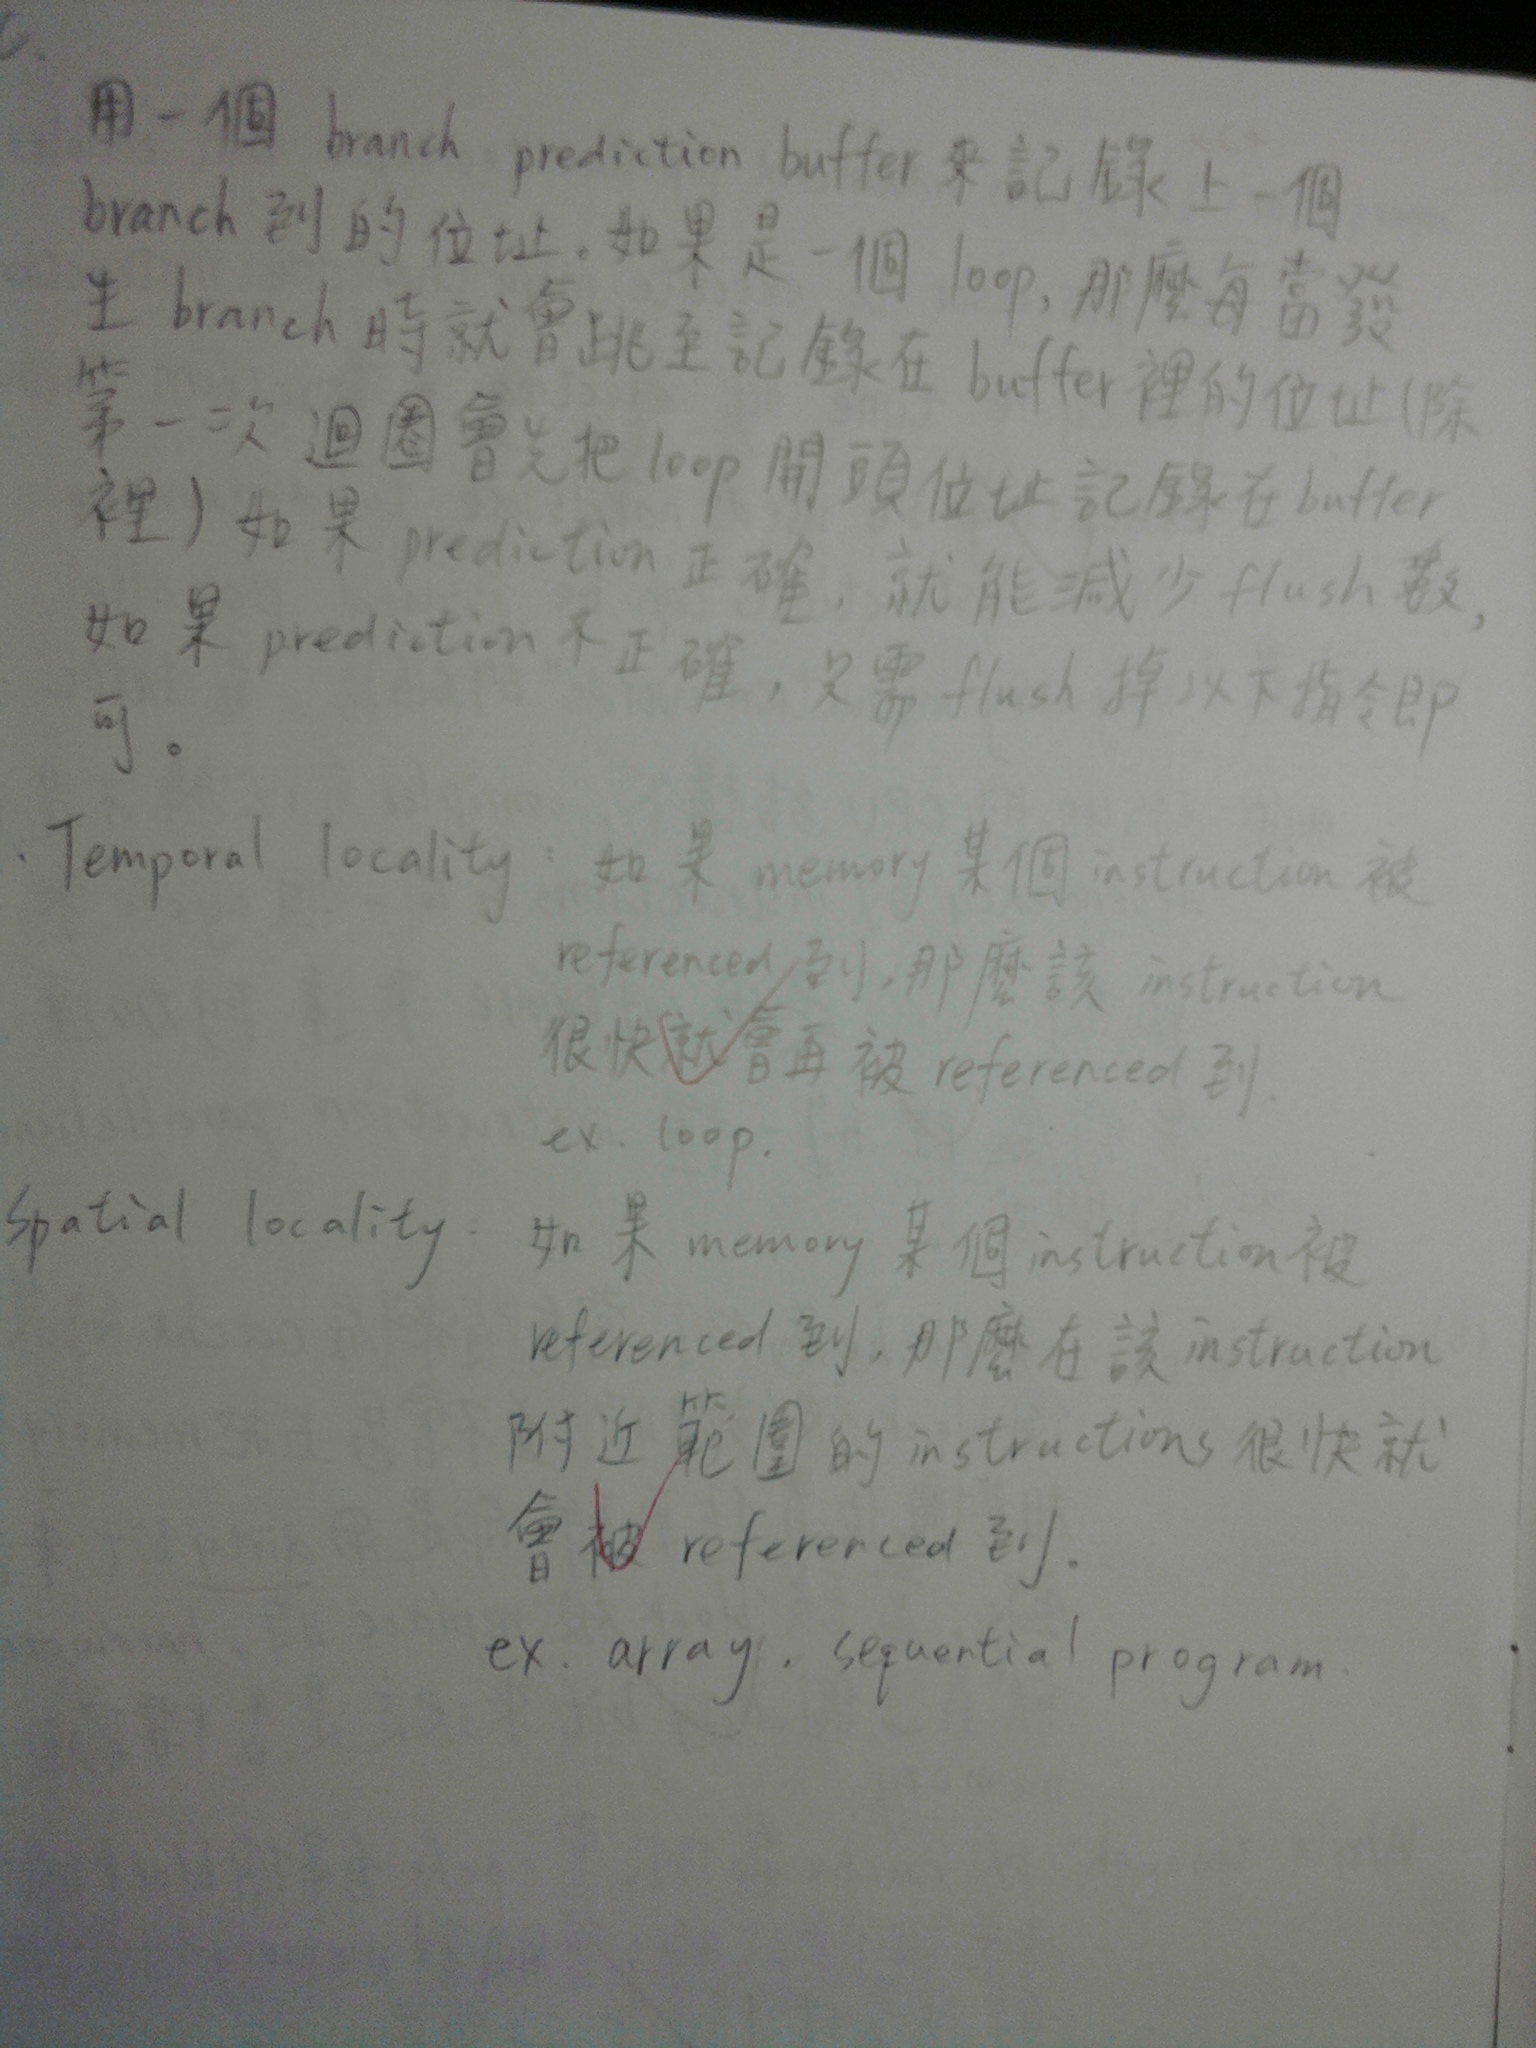 用一個 branch prediction buffer 來記錄上一個
branch 到的位址.如果是一個 loop, 那麼每當發
生 branch 時就會跳至記錄在 buffer 裡的位址(除
第一次迴圈會先把 loop 開頭位址記錄在 buffer
裡) 如果 prediction 正確, 就能減少 flush 數,
如果 prediction 不正確, 只需 flush 掉以下指令即
可。
. Temporal locality: 如果 memory 某個 instruction 被
referenced 到, 那麼該 instruction
很快就會再被 referenced 到.
ex. loop.
Spatial locality: 如果 memory 某個 instruction 被
referenced 到, 那麼在該 instruction
附近範圍的 instructions 很快就
會被 referenced 到.
ex. array. sequential program.